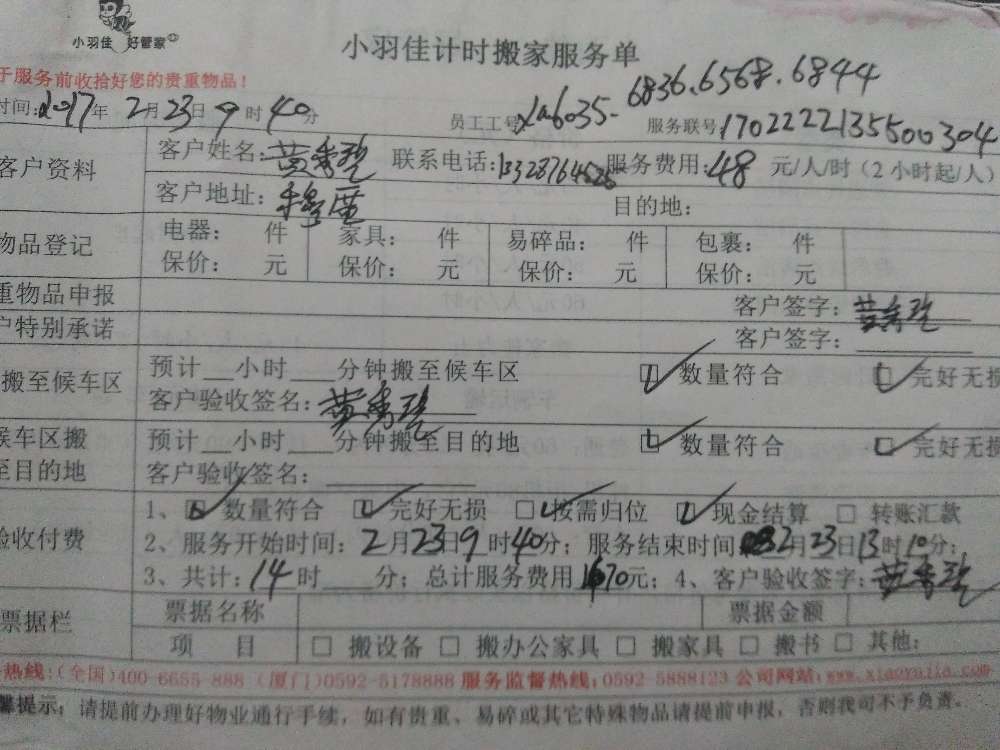 小羽佳 好管家
小羽佳计时搬家服务单
于服务前收拾好您的贵重物品！
时间：2017年 2月23日 9时40分 员工工号 6835-6836.6568.6844 服务联号 1702222135500304
客户资料 客户姓名：黄秀 联系电话： 服务费用：48 元/人/时（2小时起/人）
客户地址： 目的地：
物品登记 电器： 件 家具： 件 易碎品： 件 包裹： 件
保价： 元 保价： 元 保价： 元 保价： 元
重物品申报 客户签字：黄秀
户特别承诺 客户签字：
搬至候车区 预计__小时___分钟搬至候车区 数量符合 完好无损
客户验收签名：黄秀
候车区搬至目的地 预计__小时___分钟搬至目的地 数量符合 完好无损
客户验收签名：
验收付费 1、数量符合 完好无损 □按需归位 现金结算 □ 转账汇款
2、服务开始时间：2月23日9时40分；服务结束时间 2月23日13时10分；
3、共计：14时___分；总计服务费用 670元；4、客户验收签字：黄秀
票据栏 票据名称 票据金额
项 目 □ 搬设备 □ 搬办公家具 □ 搬家具 □ 搬书 □ 其他：
热线：（全国）400-6655-888（厦门）0592-5178888 服务监督热线：0592-5888123 公司网站：www.xiaoyujia.com
馨提示：请提前办理好物业通行手续，如有贵重、易碎或其它特殊物品请提前申报，否则我司不予负责。